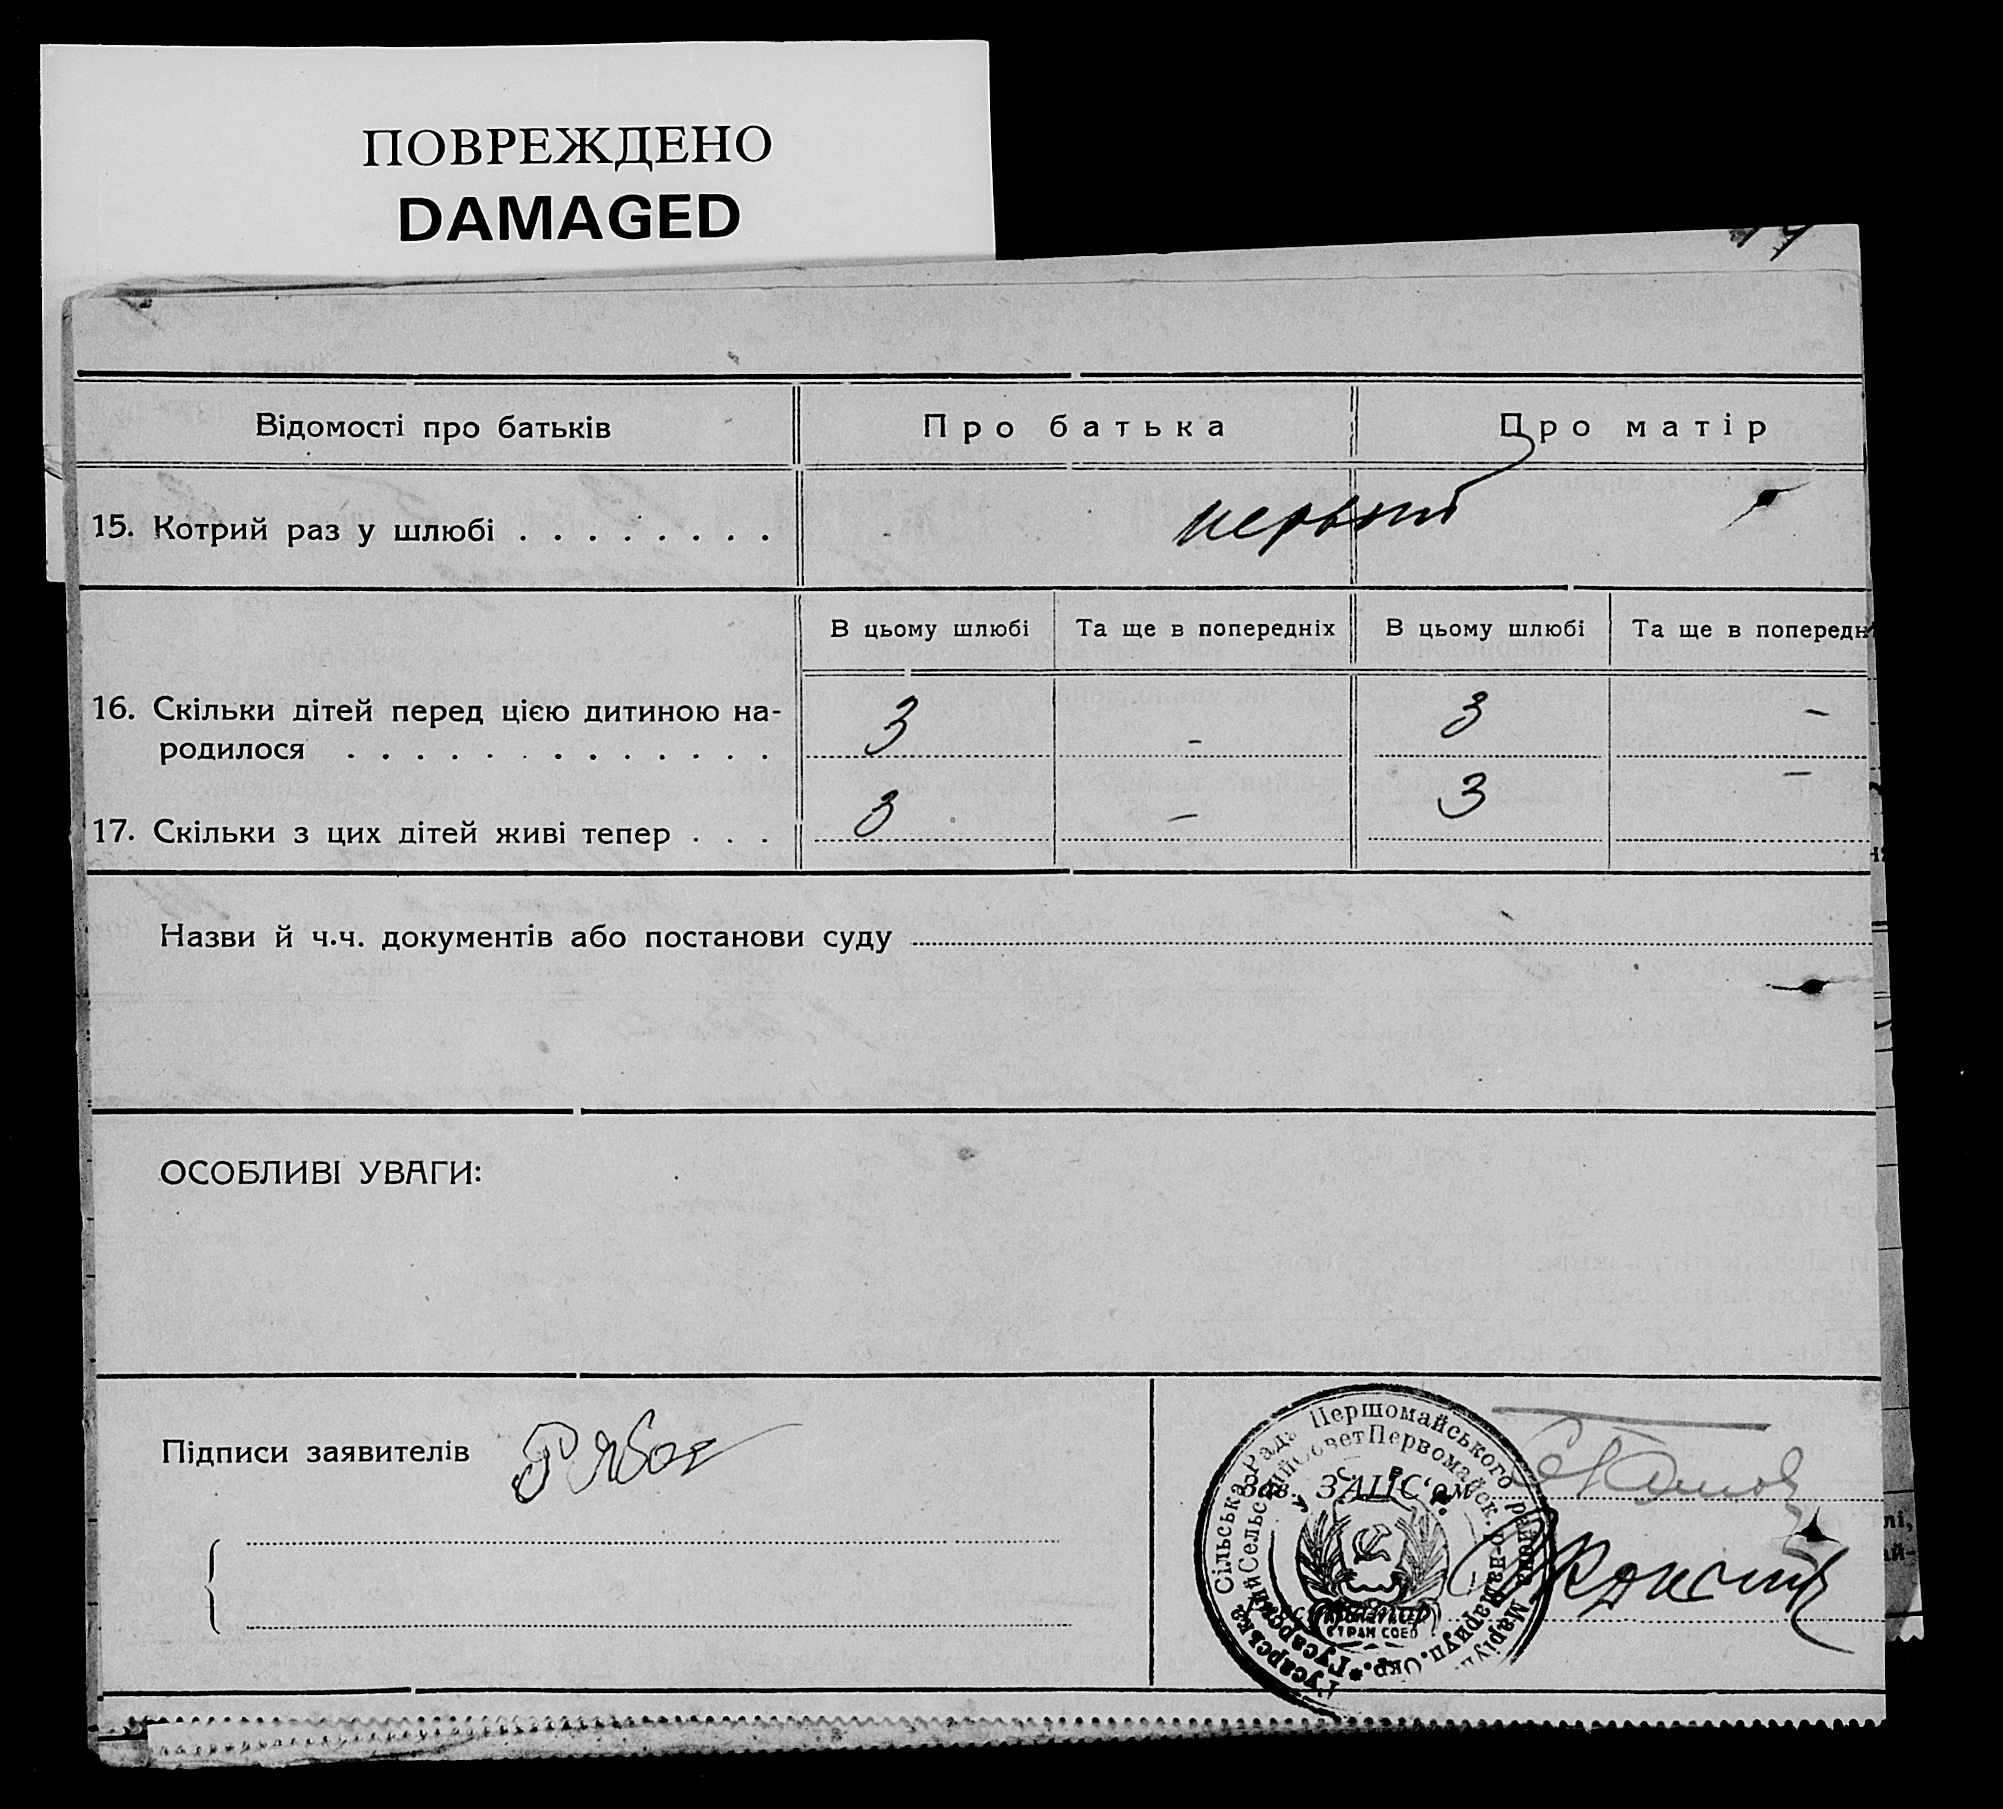 ПОВРЕЖДЕНО
DAMAGED
Відомості про батьків
Про батька
Про матір
15. Котрий раз у шлюбі . . . . . . . .
первый
В цьому шлюбі
Та ще в попередніх
В цьому шлюбі
Та ще в попередн
16. Скільки дітей перед цією дитиною на-
родилося . . . . . . . . . . . . .
3 - 3 -
17. Скільки з цих дітей живі тепер . . .
3 - 3 -
Назви й ч.ч. документів або постанови суду
ОСОБЛИВІ УВАГИ:
Підписи заявителів
Гусарська Сільська Рада Першомайського району Маріуп.
Гусарский Сельский Совет Первомайск. р-на Мариуп. Окр. *
У С Р Р
Зав. ЗАПС'ом
СТРАН СОЕД